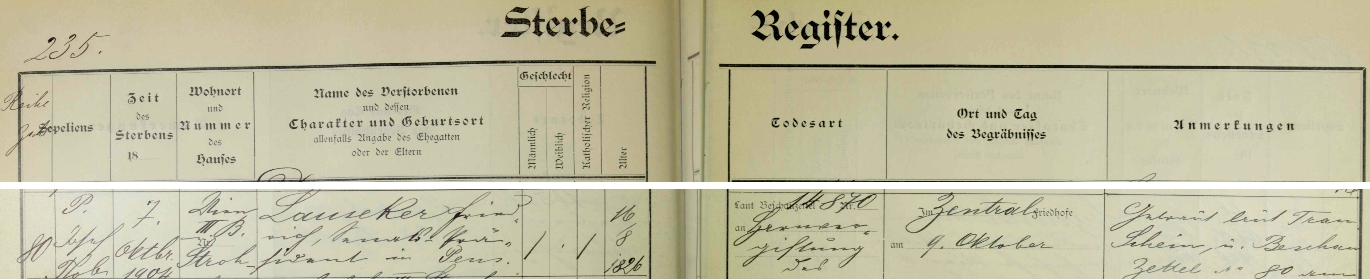 Sterbe=
Register.
235.
Reihe
Zahl
Zepeliens
Zeit
des
Sterbens
18
Wohnort
und
Nummer
des
Hauses
Name des Verstorbenen
und dessen
Charakter und Geburtsort
allenfalls Angabe des Ehegatten
oder der Eltern
Geschlecht
Männlich
Weiblich
Katholischer Religion
Alter
Todesart
Ort und Tag
des Begräbnisses
Anmerkungen
80
P.
Josef
7.
Oktbr.
1904
Wien
III. B.
Stroh
Lauseker Fried¬
rich, Senats-Prä¬
sident in Pens.
/ . /
16
8
1826
Laut Beschauzettel Nr. 14870
an
giftung
des
Im Zentral Friedhofe
am 9. Oktober
Getraut laut Trau
Schein, u. Beschau
Zettel No 80 vom